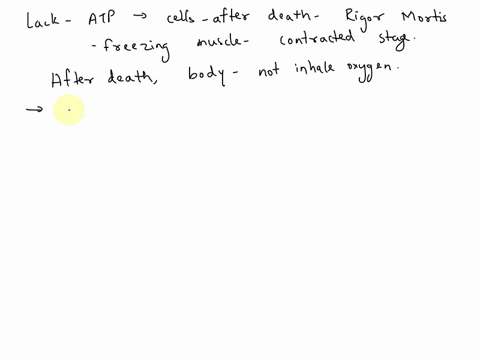 Lack - ATP → cells - after death - Rigor Mortis
- freezing muscle - contracted stage.
After death, body - not inhale oxygen.
→